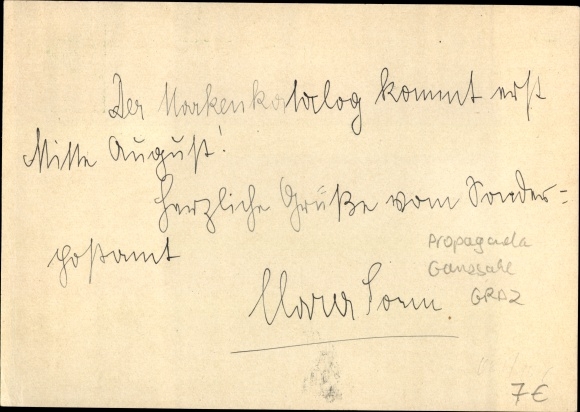 Der Markenkatalog kommt erst
Mitte August!
Herzliche Grüße vom Sonder=
postamt
Propaganda
GRAZ
7€